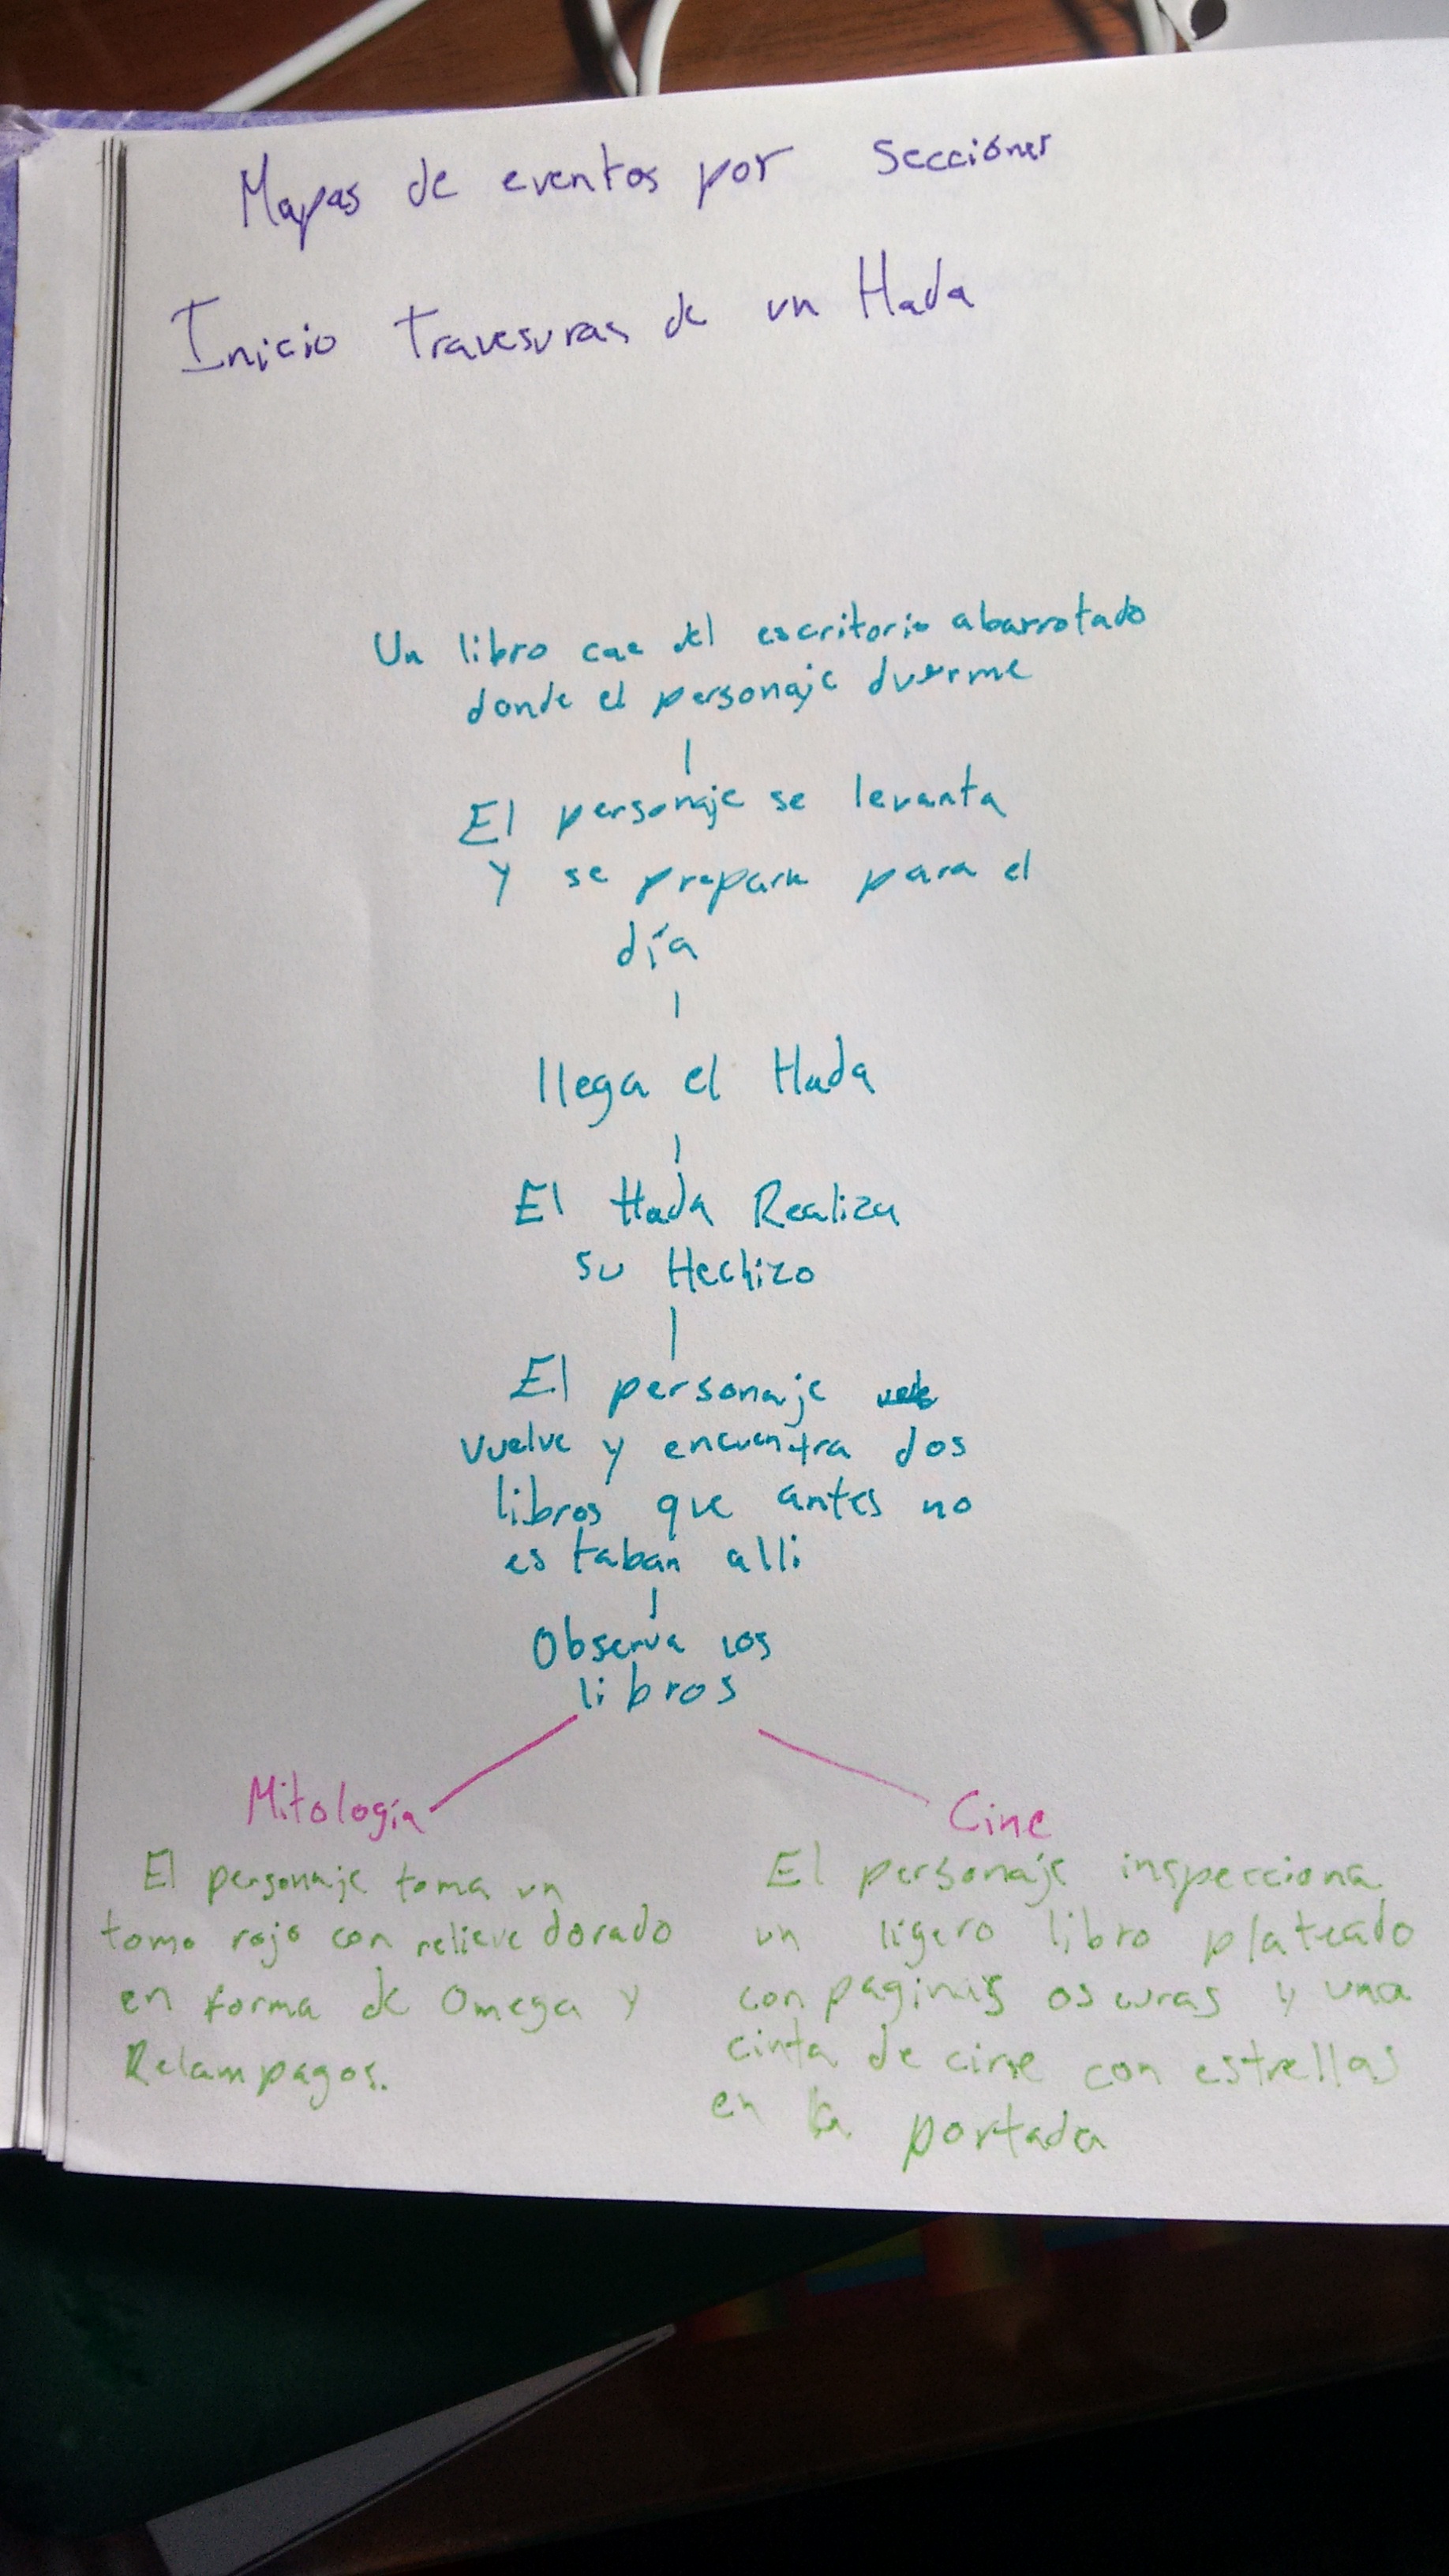 Mapas de eventos por secciónes
Inicio Travesuras de un Hada
Un libro cae del escritorio abarrotado
donde el personaje duerme
El personaje se levanta
y se prepara para el
día
llega el Hada
El Hada Realiza
su Hechizo
El personaje
vuelve y encuentra dos
libros que antes no
estaban alli
Observa los
libros
Mitología
El personaje toma un
tomo rojo con relieve dorado
en forma de Omega y
Relampagos.
Cine
El personaje inspecciona
un ligero libro plateado
con paginas oscuras y una
cinta de cine con estrellas
en la portada